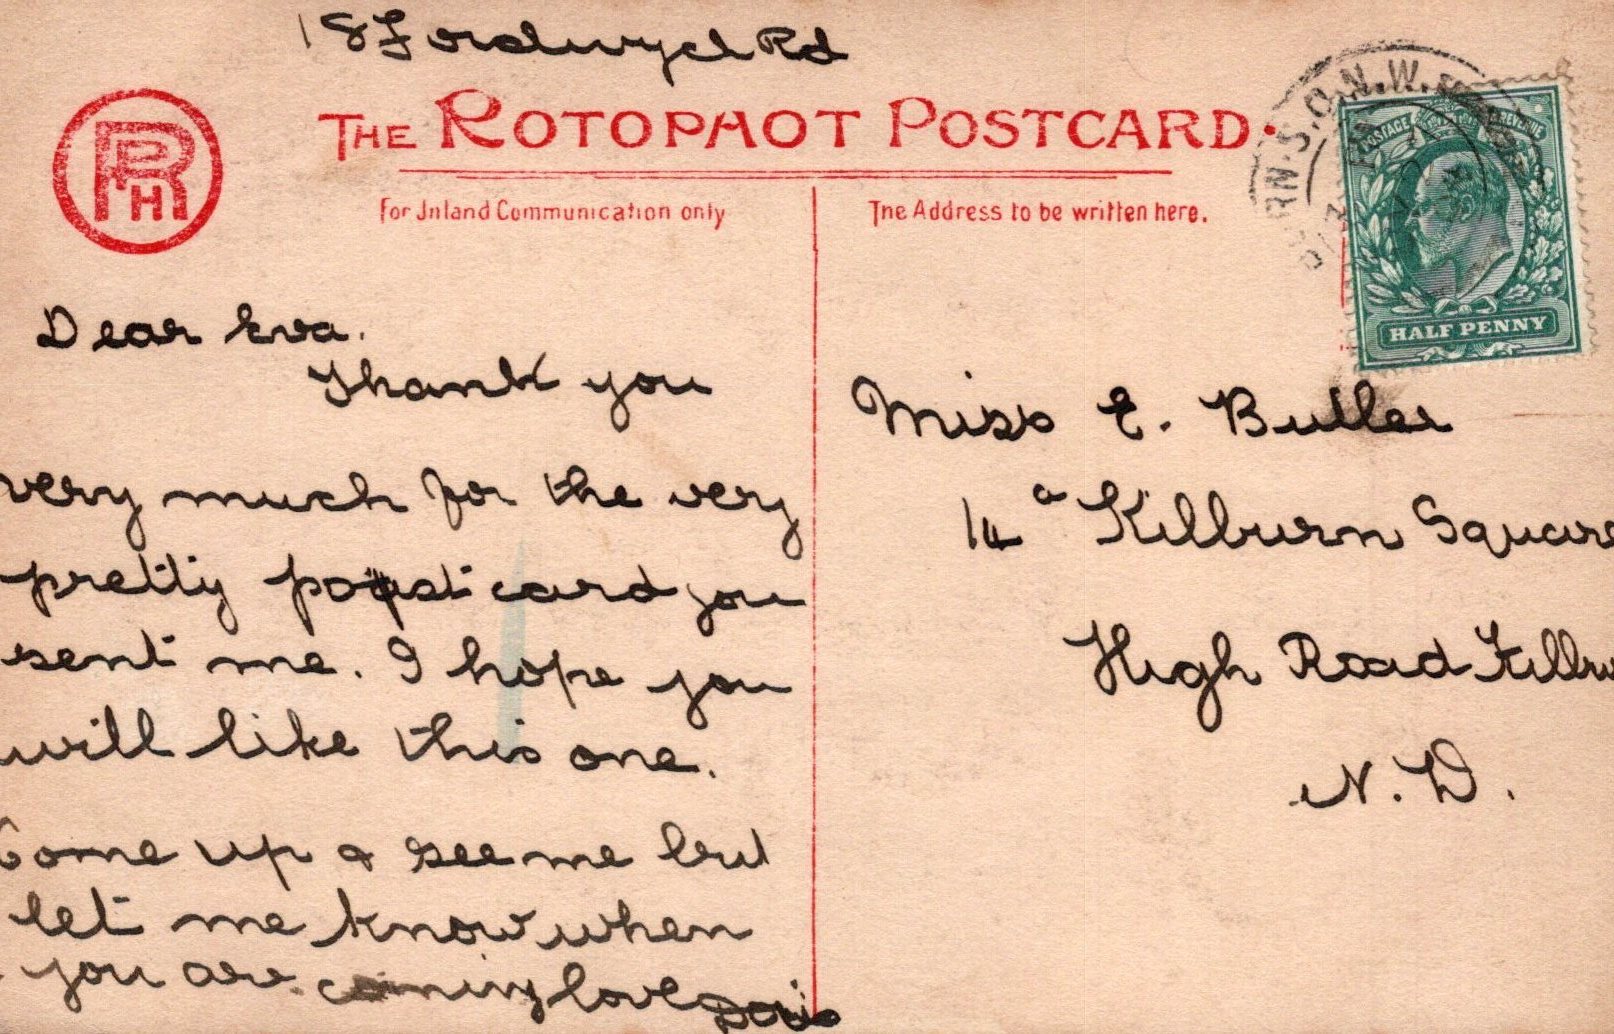 18 Fordwych Rd
THE ROTOPHOT POSTCARD.
RPH
For Inland Communication only
The Address to be written here.
POSTAGE REVENUE
HALF PENNY
Dear Eva.
Thank you
very much for the very
pretty post card you
sent me. I hope you
will like this one.
Come up & see me but
let me know when
you are coming love Doris
Miss E. Butler
14a Kilburn Square
High Road Kilbu
N.W.